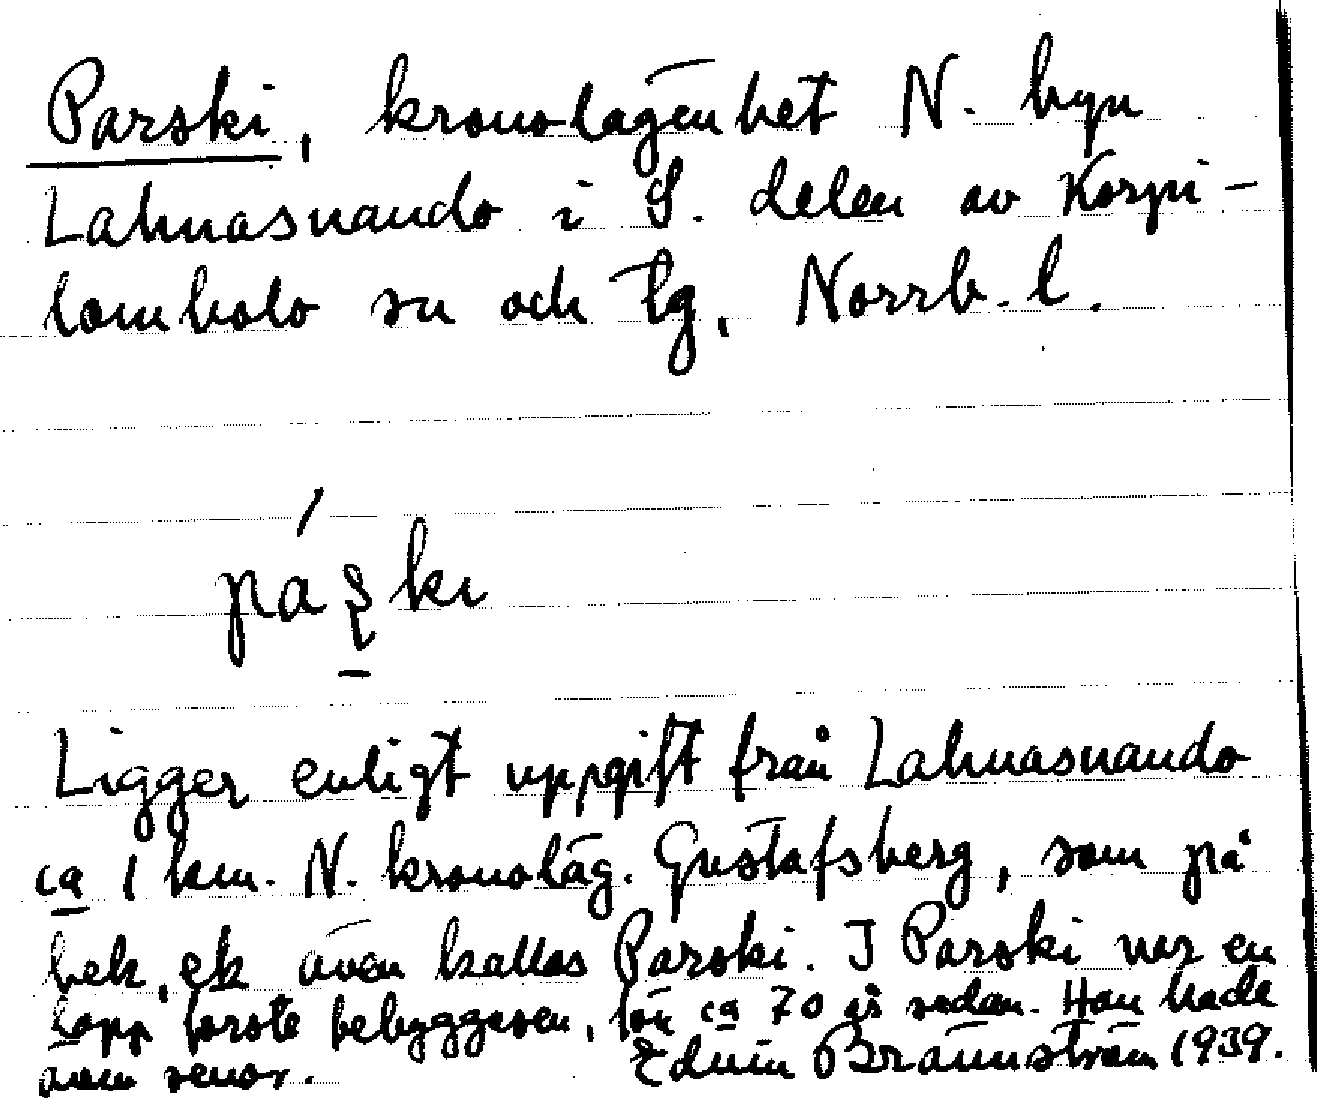 Parski, kronolägenhet N. byn
Lahnasuando i S. delen av Korpi-
lombolo sn och tg, Norrb. l.
páṣki
Ligger enligt uppgift från Lahnasuando
ca 1 km. N. kronoläg. Gustafsberg, som på
bek, ek även kallas Parski. I Parski var en
lapp förste bebyggaren, för ca 70 år sedan. Han hade
även renar. Edvin Brännström 1939.